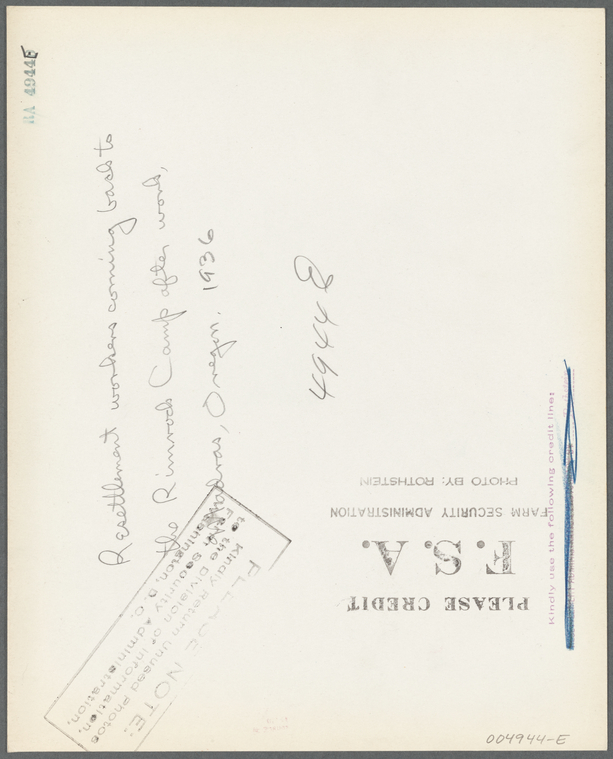 RA 4944E
Resettlement workers coming back to
the Rimrock Camp after work,
Madras, Oregon. 1936
4944 E
PLEASE CREDIT
F.S.A.
FARM SECURITY ADMINISTRATION
PHOTO BY: ROTHSTEIN
Kindly use the following credit line:
PLEASE NOTE:
Kindly Return Unused Photos
to the Division of Information,
Farm Security Administration,
Washington, D. C.
004944-E